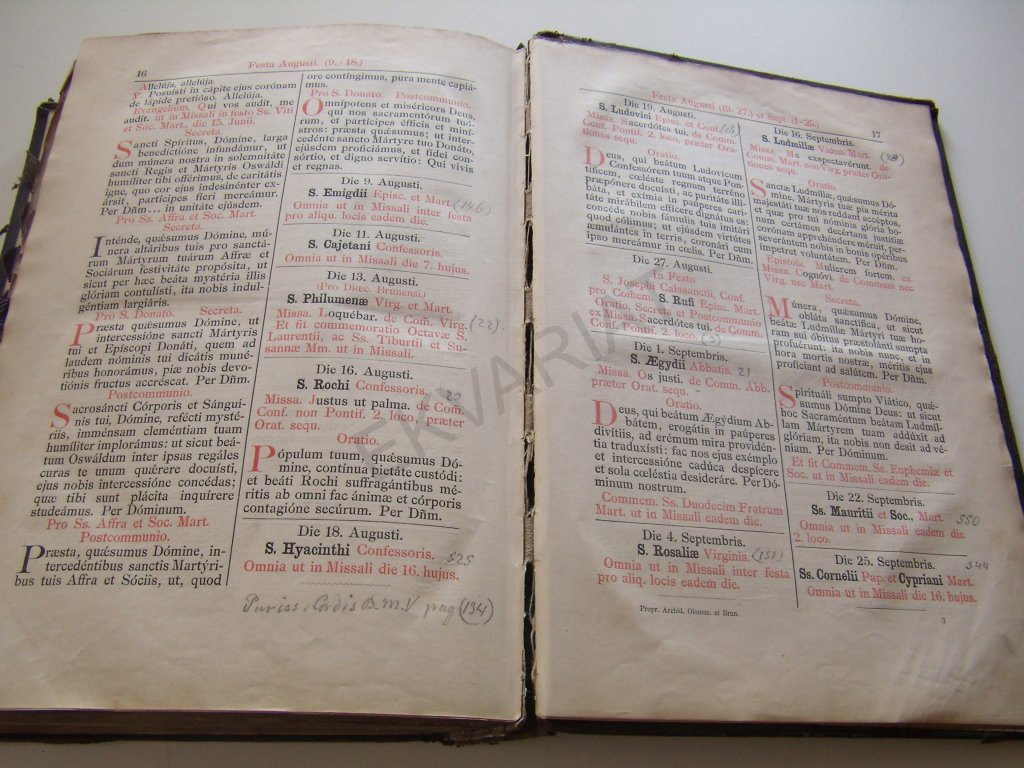 16
Festa Augusti. (9.-18.)
Allelúja, allelúja.
℣. Posuísti in cápite ejus corónam
de lápide pretióso. Allelúja.
Evangelium. Qui vos audit, me
audit. ut in Missali in festo Ss. Viti
et Soc. Mart. die 15. Junii.
Secreta.
Sancti Spíritus, Dómine, larga
benedictióne infundántur, ut
dum múnera nostra in solemnitáte
sancti Regis et Mártyris Oswáldi
humíliter tibi offérimus, de caritátis
igne, quo cor ejus indesinénter ex-
ársit, partícipes fíeri mereámur.
Per Dñm... in unitáte ejúsdem.
Pro Ss. Affra et Soc. Mart.
Secreta.
Inténde, quǽsumus Dómine, mú-
nera altáribus tuis pro sanctá-
rum Mártyrum tuárum Affræ et
Sociárum festivitáte propósita, ut
sicut per hæc beáta mystéria illis
glóriam contulísti, ita nobis indul-
géntiam largiáris.
Pro S. Donato. Secreta.
Præsta quǽsumus Dómine, ut
intercessióne sancti Mártyris
tui et Epíscopi Donáti, quem ad
laudem nóminis tui dicátis muné-
ribus honorámus, piæ nobis devo-
tiónis fructus accréscat. Per Dñm.
Postcommunio.
Sacrosáncti Córporis et Sángui-
nis tui, Dómine, refécti mysté-
riis, imménsam cleméntiam tuam
humíliter implorámus: ut sicut beá-
tum Oswáldum inter ipsas regáles
curas te unum quǽrere docuísti,
ejus nobis intercessióne concédas;
quæ tibi sunt plácita inquírere
studeámus. Per Dóminum.
Pro Ss. Affra et Soc. Mart.
Postcommunio.
Præsta, quǽsumus Dómine, in-
tercedéntibus sanctis Martýri-
bus tuis Affra et Sóciis, ut, quod
ore contíngimus, pura mente capiá-
mus.
Pro S. Donato. Postcommunio.
Omnípotens et miséricors Deus,
qui nos sacramentórum tuó-
rum, et partícipes éfficis et miní-
stros: præsta quǽsumus; ut inter-
cedénte sancto Mártyre tuo Donáto,
ejúsdem proficiámus, et fídei con-
sórtio, et digno servítio: Qui vivis
et regnas.
Die 9. Augusti.
S. Emigdii Episc. et Mart. (146)
Omnia ut in Missali inter festa
pro aliqu. locis eadem die.
Die 11. Augusti.
S. Cajetani Confessoris.
Omnia ut in Missali die 7. hujus.
Die 13. Augusti.
(Pro Diœc. Brunensi.)
S. Philumenæ Virg. et Mart.
Missa. Loquébar. de Com. Virg. (22).
Et fit commemoratio Octavæ S.
Laurentii, ac Ss. Tiburtii et Su-
sannæ Mm. ut in Missali.
Die 16. Augusti.
S. Rochi Confessoris. 20
Missa. Justus ut palma. de Com.
Conf. non Pontif. 2. loco, præter
Orat. sequ.
Oratio.
Pópulum tuum, quǽsumus Dó-
mine, contínua pietáte custódi:
et beáti Rochi suffragántibus mé-
ritis ab omni fac ánimæ et córporis
contagióne secúrum. Per Dñm.
Die 18. Augusti.
S. Hyacinthi Confessoris. 525
Omnia ut in Missali die 16. hujus.
Puriss. Cordis B.M.V pag (134)
Festa Augusti (19. 27.) et Sept. (1-25.)
17
Die 19. Augusti.
S. Ludovici Episc. et Conf. (15)
Missa. Sacerdótes tui. de Comm.
Conf. Pontif. 2. loco, præter Ora-
tiones sequ.
Oratio.
Deus, qui beátum Ludovícum
Confessórem tuum atque Pon-
tíficem, cœléste regnum terréno
præpónere docuísti, ac puritáte illi-
báta, et exímia in páuperes cari-
táte mirábilem effícere dignátus es:
concéde nobis fámulis tuis imitári
quod cólimus; ut ejúsdem virtútes
æmulántes in terris, coronári cum
ipso mereámur in cœlis. Per Dñm.
Die 27. Augusti.
In Festo
S. Josephi Calasanctii, Conf.
pro Comem. S. Rufi Episc. Mart.
Oratio, Secreta et Postcommunio
ex Missa. Sacerdótes tui. de Comm.
Conf. Pontif. 2. loco.
Die 1. Septembris.
S. Ægydii Abbatis. 21
Missa. Os justi. de Comm. Abb.
præter Orat. sequ.
Oratio.
Deus, qui beátum Ægýdium Ab-
bátem, erogátis in páuperes
divítiis, ad erémum mira providén-
tia traduxísti: fac nos ejus exémplo
et intercessióne cadúca despícere
et sola cœléstia desideráre. Per Dó-
minum nostrum.
Commem. Ss. Duodecim Fratrum
Mart. ut in Missali eadem die.
Die 4. Septembris.
S. Rosaliæ Virginis. (151)
Omnia ut in Missali inter festa
pro aliq. locis eadem die.
Propr. Archid. Olomuc. et Brun.
Die 16. Septembris.
S. Ludmillæ Viduæ Mart. (28)
Missa. Me exspectavérunt. de
Comm. Mart. non Virg. præter Ora-
tiones sequ.
Oratio.
Sanctæ Ludmíllæ, quǽsumus Dó-
mine, Mártyris tuæ pia mérita
majestáti tuæ nos reddant accéptos,
et quæ pro tui nóminis glória bo-
num certámen decértans justítiæ
corónam apprehéndere méruit, per-
severántem nobis in bonis opéribus
ímpetret voluntátem. Per Dñm.
Epistola. Mulíerem fortem. ex
Missa. Cognóvi. de Communi nec
Virg. nec Mart.
Secreta.
Múnera, quǽsumus, Dómine,
obláta sanctífica, ut sicut
beátæ Ludmíllæ Mártyri tuæ ho-
ram sui óbitus præstolánti sumpta
profuérunt; ita nobis nunc, et in
hora mortis nostræ, méritis ejus
profíciant ad salútem. Per Dñm.
Postcommunio.
Spirituáli sumpto Viático, quǽ-
sumus Dómine Deus: ut sicut
hoc Sacraméntum beátam Ludmíl-
lam Mártyrem tuam addúxit ad
glóriam, ita nobis non desit ad vé-
niam. Per Dóminum.
Et fit Commem. Ss. Euphemiæ et
Soc. ut in Missali eadem die.
Die 22. Septembris.
Ss. Mauritii et Soc., Mart. 550
Omnia ut in Missali eadem die
2. loco.
Die 25. Septembris. 544
Ss. Cornelii Pap. et Cypriani Mart.
Omnia ut in Missali die 16. hujus.
3